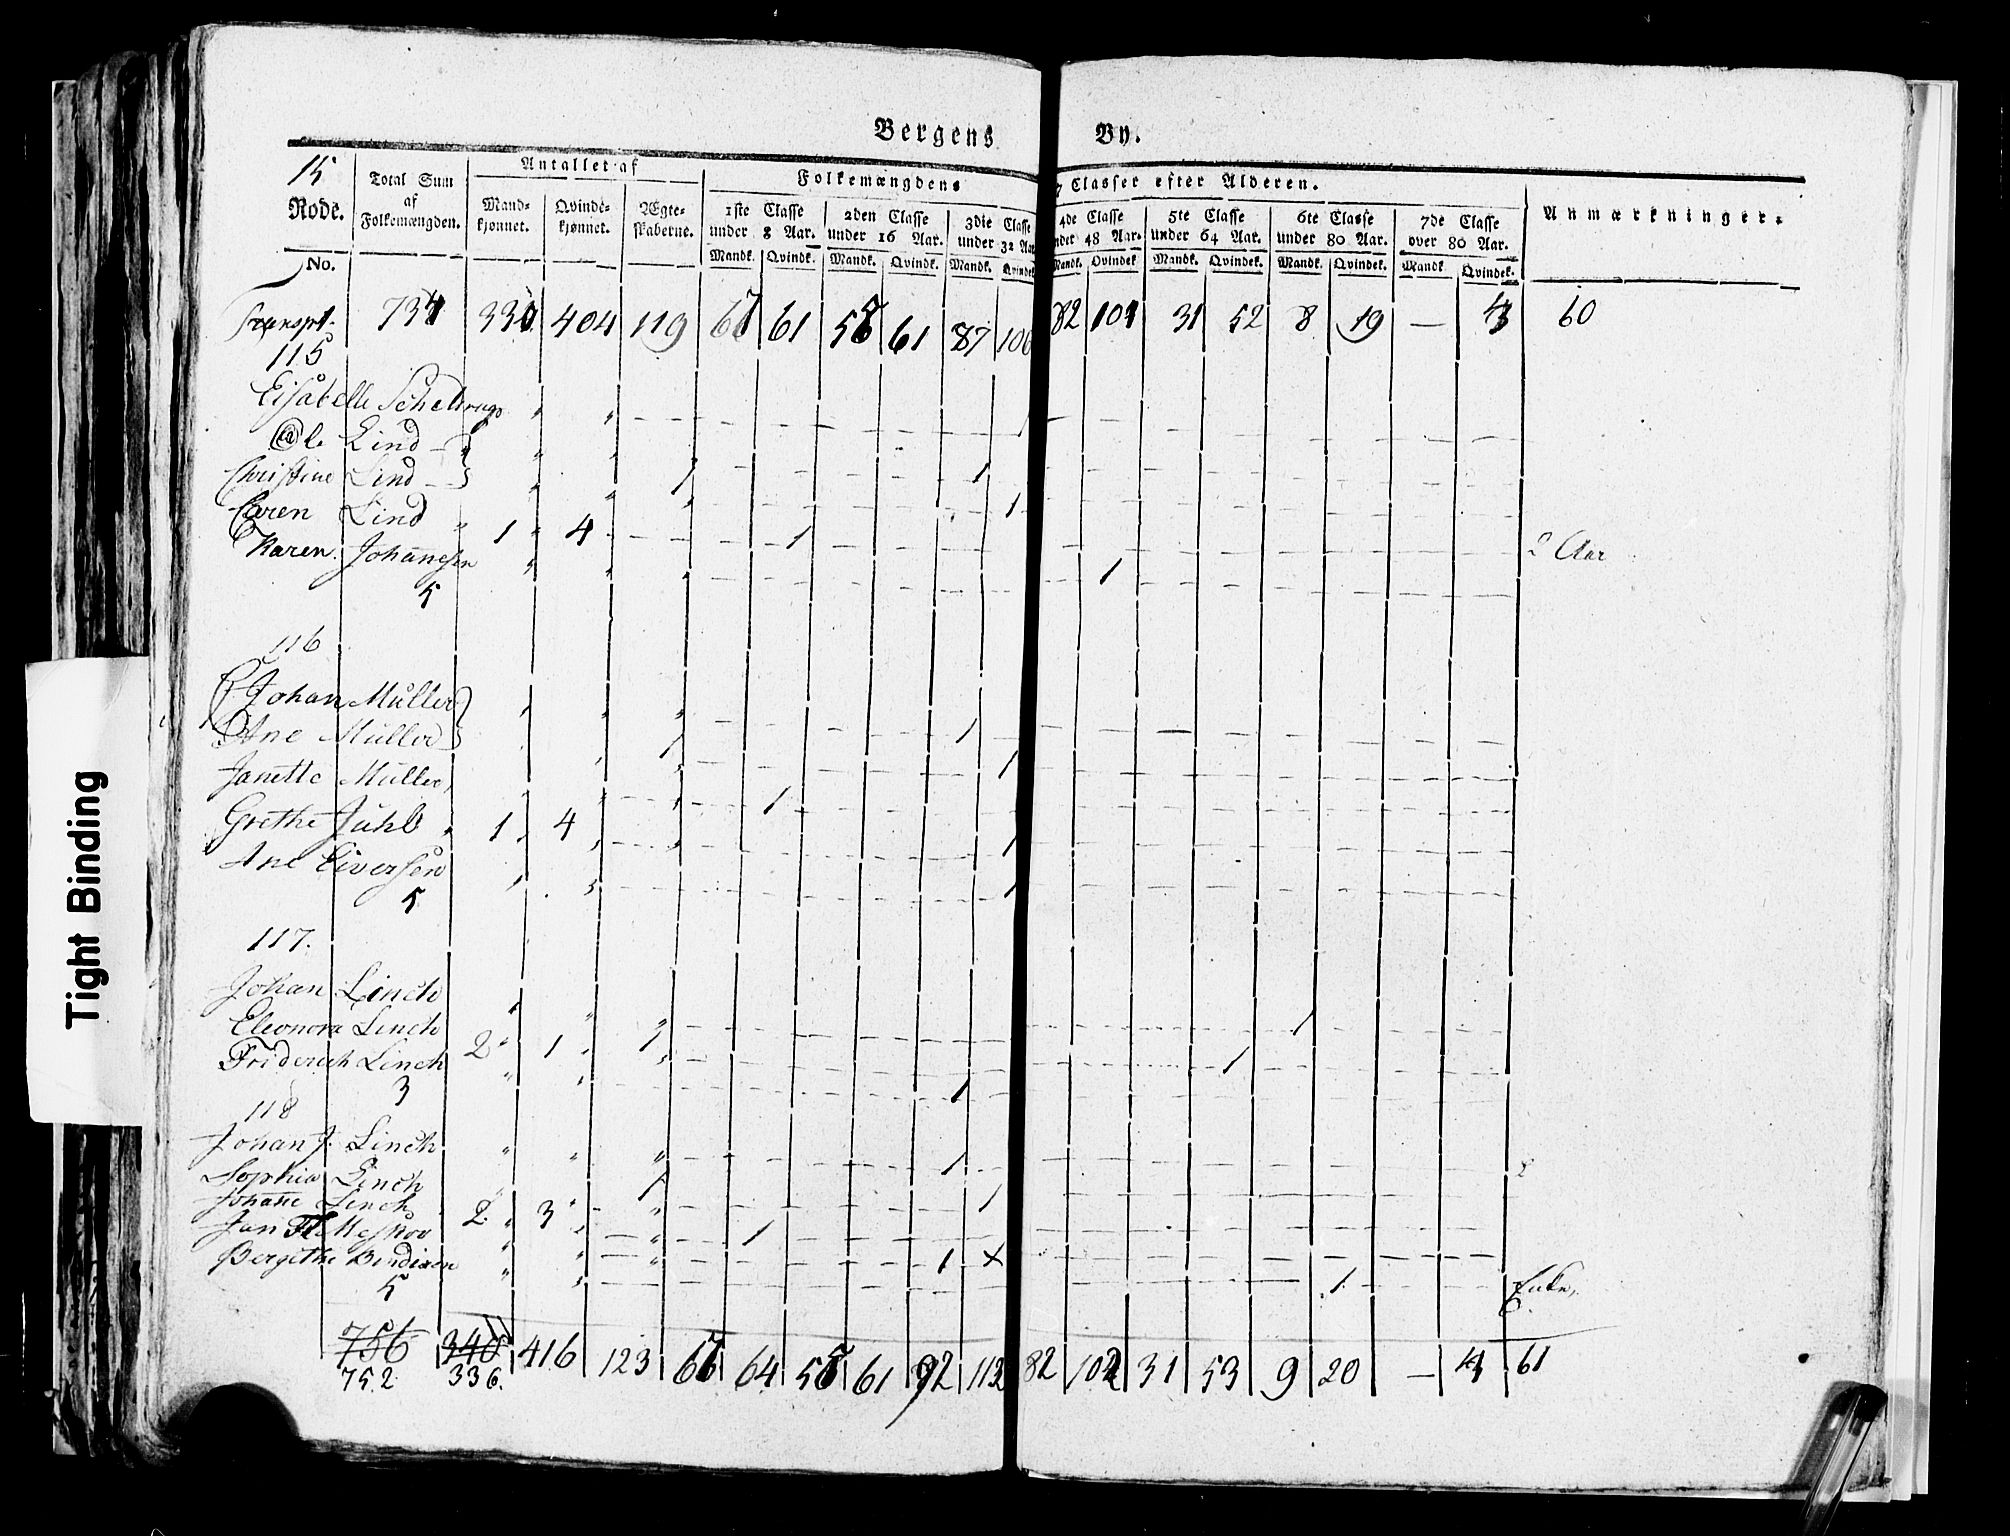 Bergens By.
15 Rode.
Total Sum af Folkemængden.
Antallet af
Mandkjønnet.
Qvindekjønnet.
Ægteskaberne.
Folkemængdens
Classer efter Alderen.
1ste Classe under 8 Aar.
2den Classe under 16 Aar.
3die Classe under 32 Aar
4de Classe under 48 Aar.
5te Classe under 64 Aar.
6te Classe under 80 Aar.
7de Classe over 80 Aar.
Anmærkninger.
No.
Mandk. Qvindk. Mandk. Qvindk. Mandk. Qvindek. Mandk. Qvindek. Mandk. Qvindek. Mandk. Qvindek. Mandk. Qvindek.
Transpt. 404 119 61 61 87 82 31 52 8 19 — 60
115
Ole Lind
Christine Lind 1 1
Caren Lind 1 4 1 1 2 Aar
Karen Johannesen 1
5
116
Johan Müller
Ane Müller 1 1
Janette Müller 1 1
Grethe Juhl 1 4 1
Ane Eiversen 1
5
117.
Johan Linch
Eleonora Linch 2 1 1 1
Friderich Linch 1
3 1
118
Johan J. Linch 1
Sophia Linch 1 1
Johane Linch 2 3 1
Bergethe Bendixen 1
5 1 Enke,
756 340 416 123 64 61 92 112 82 102 31 53 9 20 — 61
752 336.
Tight Binding